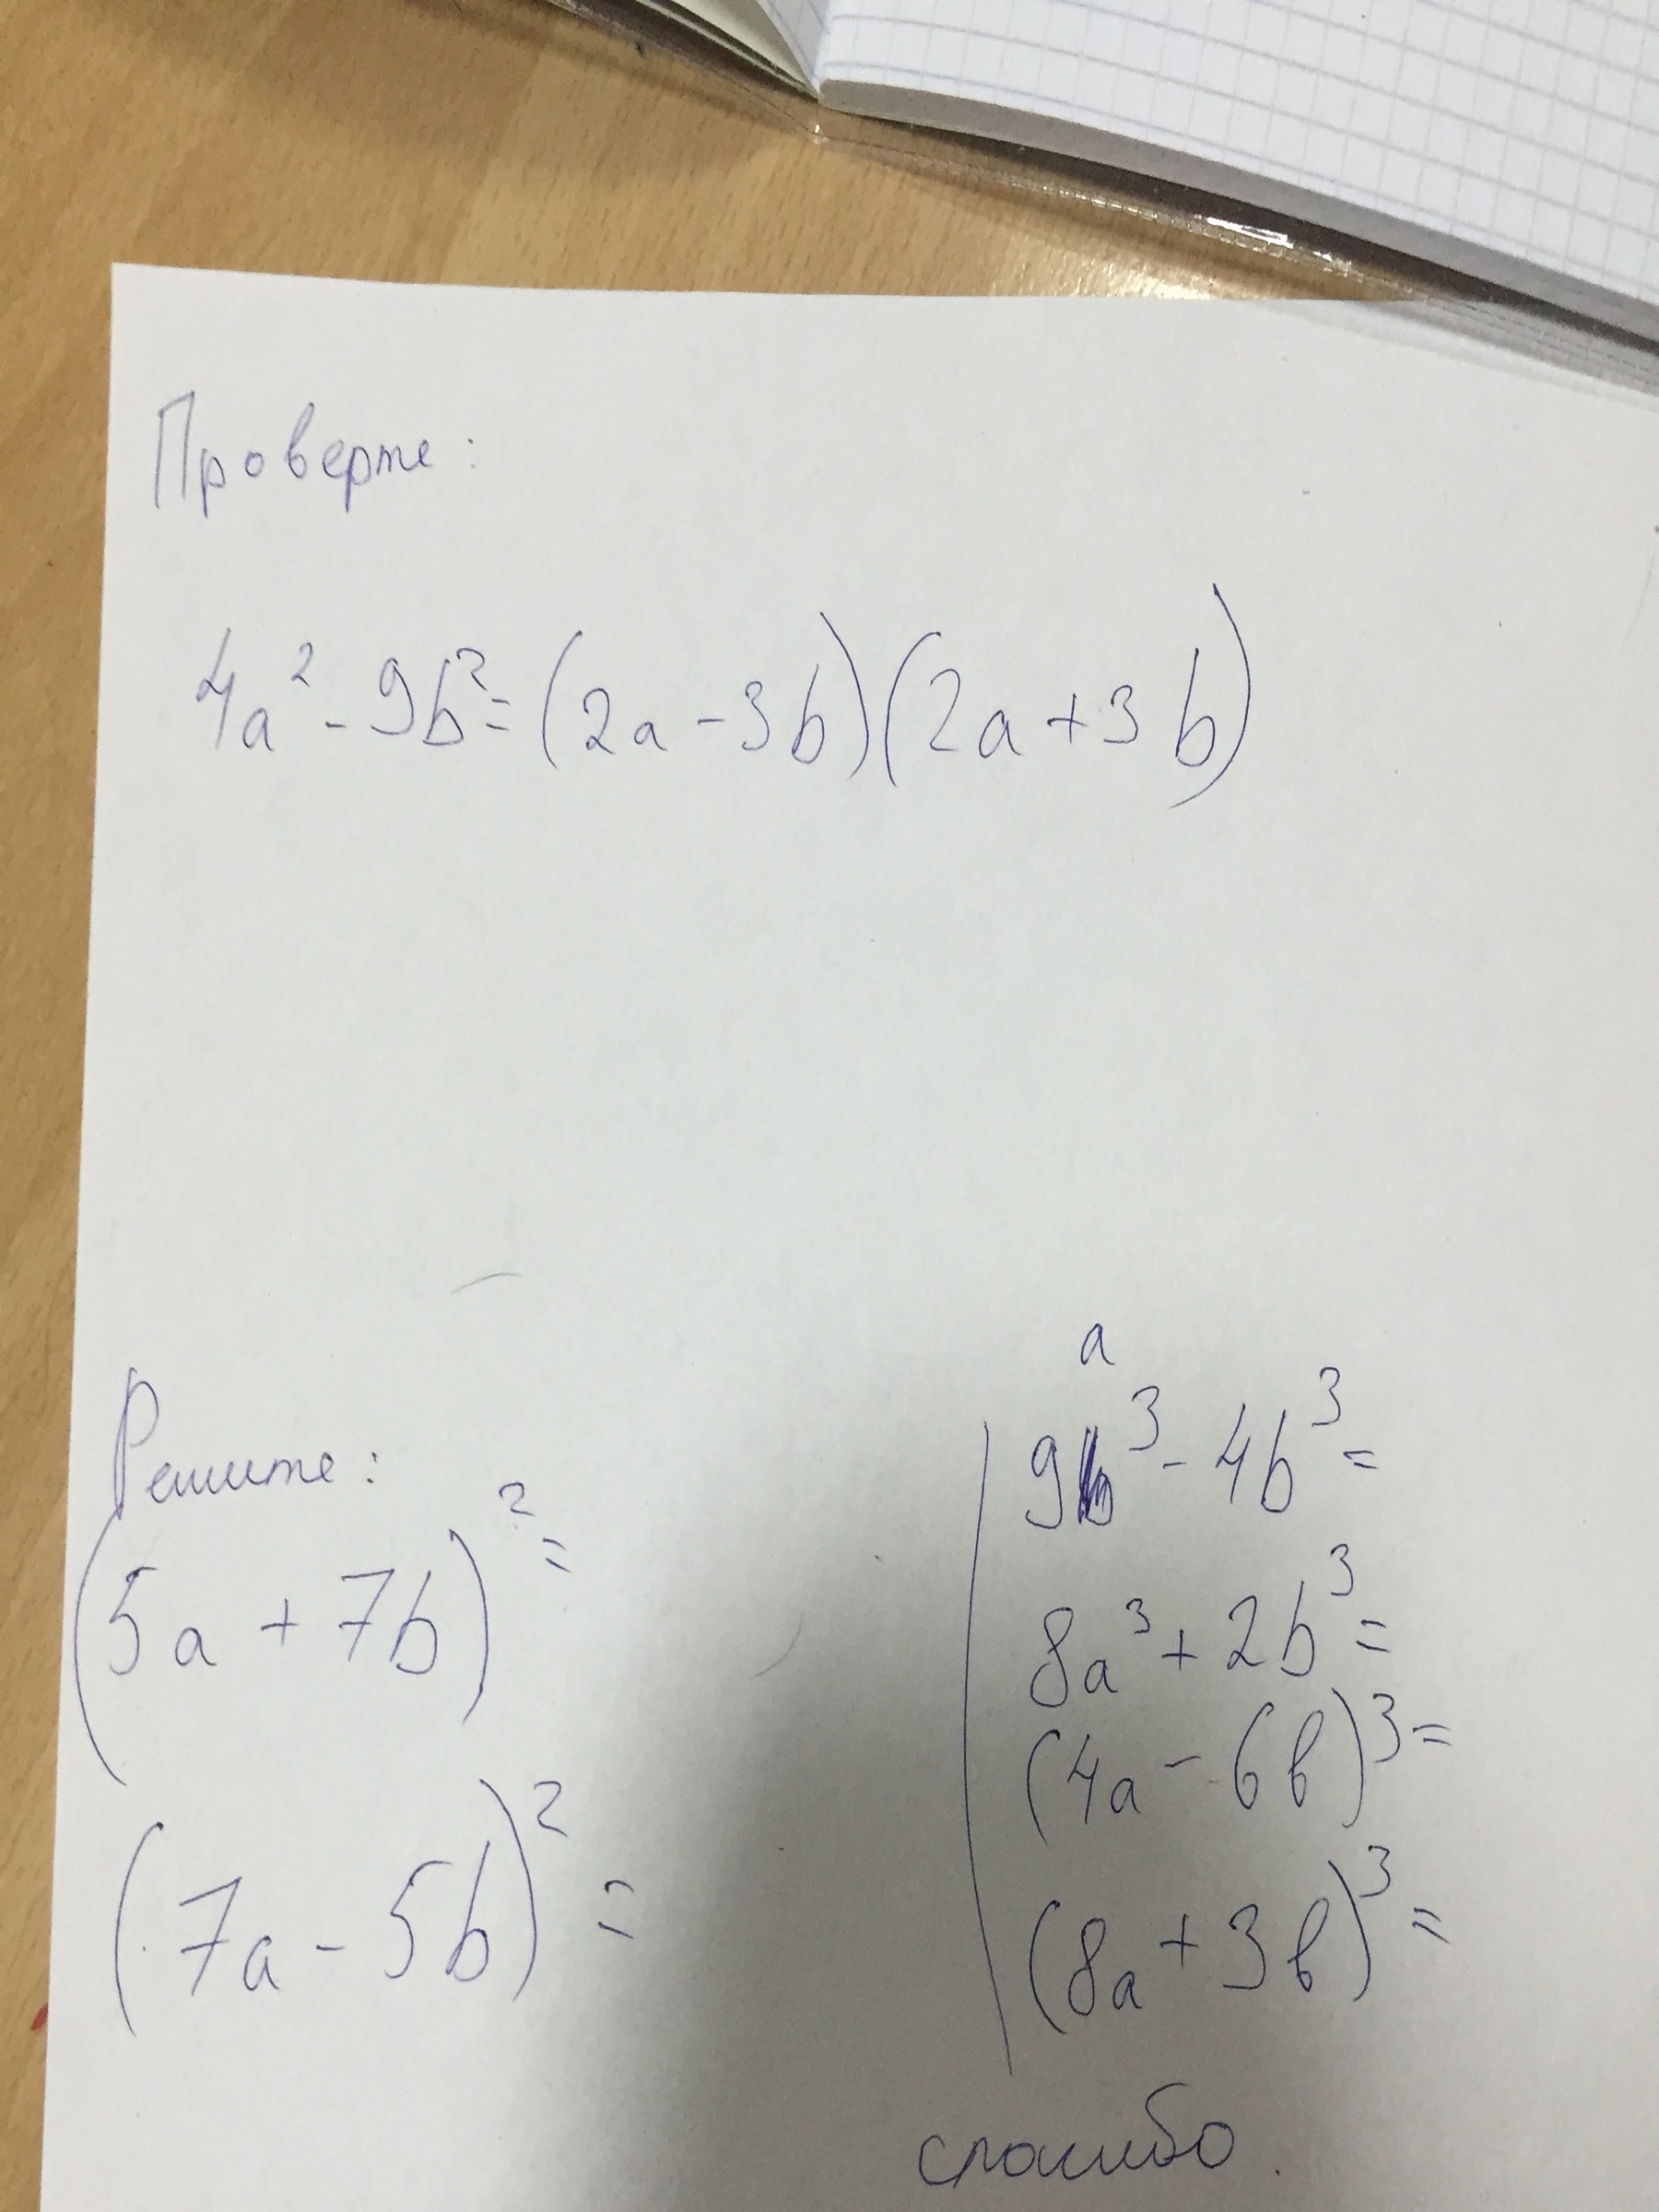 Проверте:
4a² - 9b² = (2a - 3b)(2a + 3b)
Решите:
(5a + 7b)² =
(7a - 5b)² =
a
9b³ - 4b³ =
8a³ + 2b³ =
(4a - 6в)³ =
(8a + 3в)³ =
спасибо.